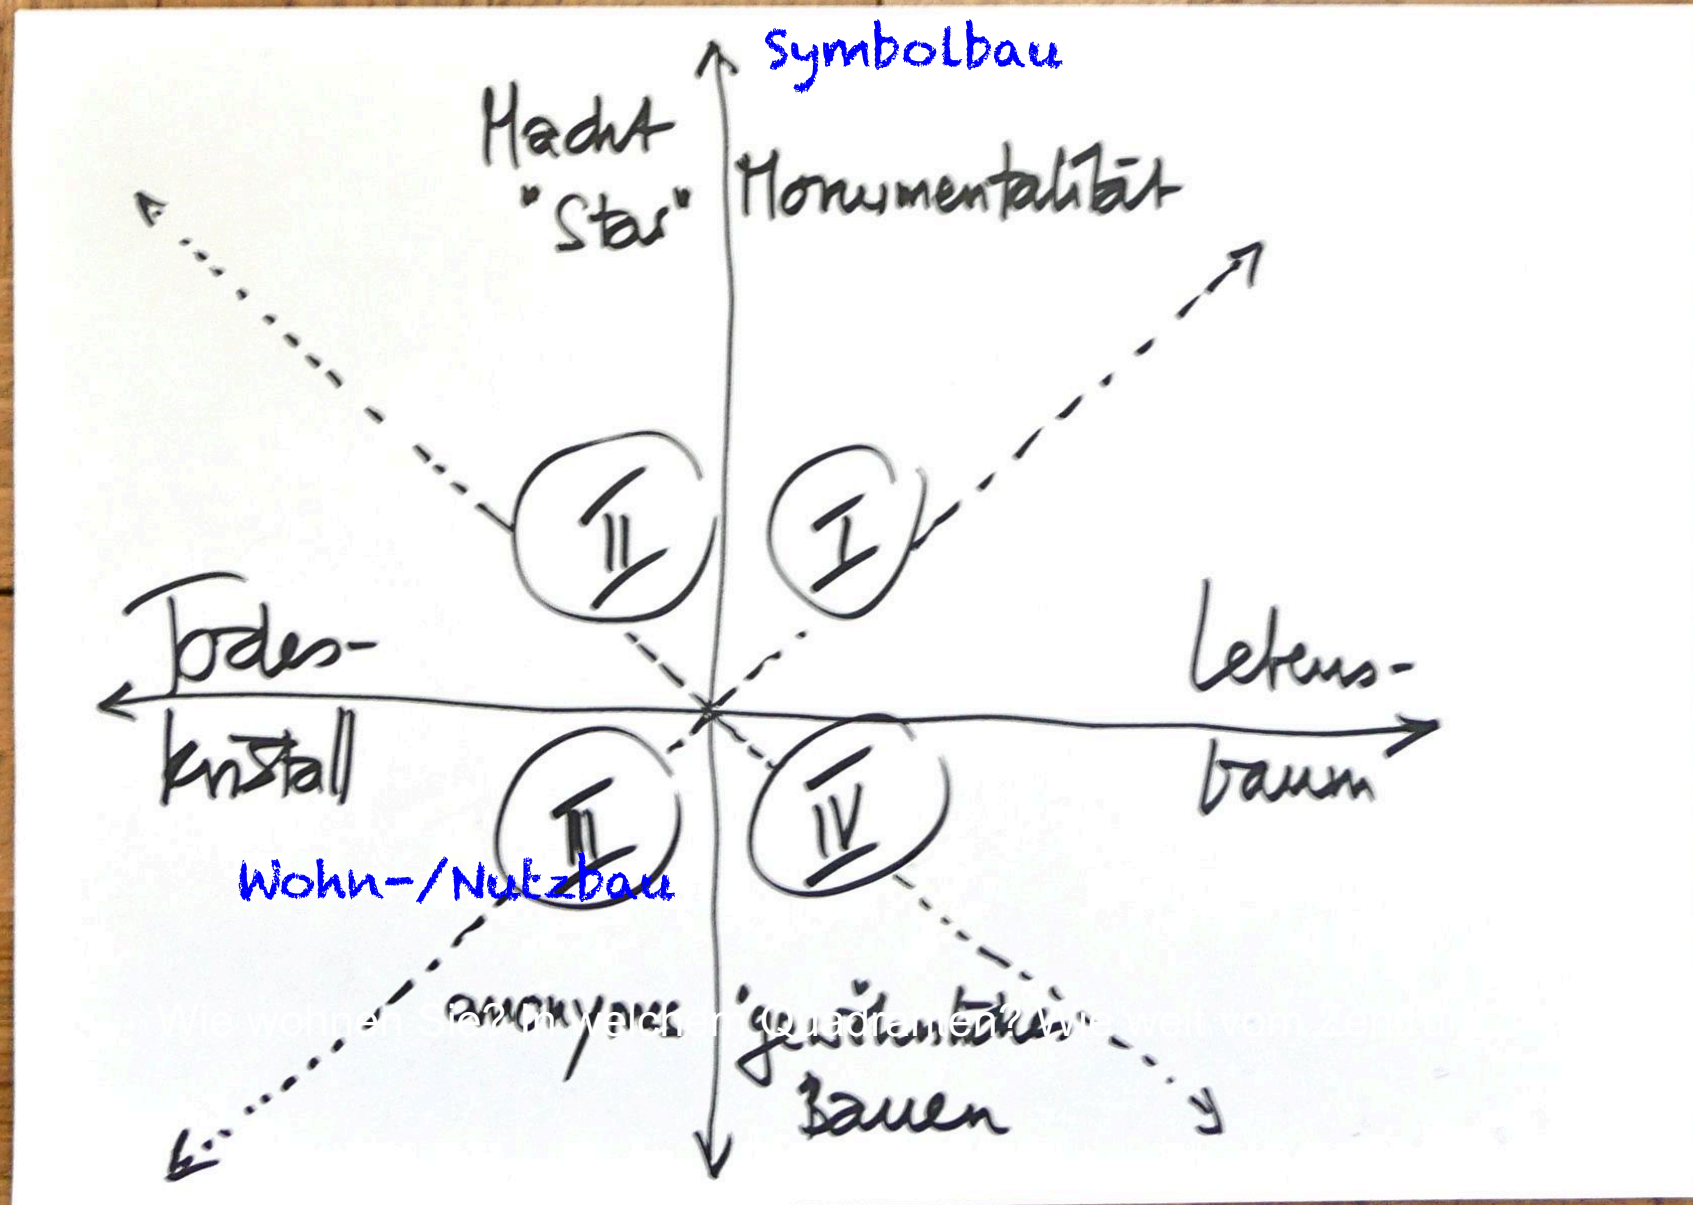 Symbolbau
Macht
"Star"
Monumentalität
II
I
Todes-
kristall
Lebens-
baum
III
IV
Wohn-/Nutzbau
anonymes
"gewöhnliches"
Bauen
Wie wohnen Sie? In welchem Quadranten? Wie weit vom